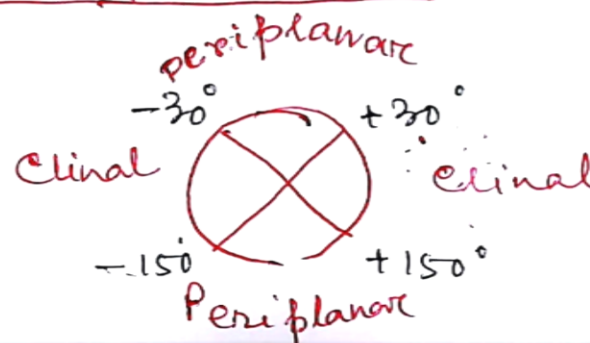 periplanar
-30° +30°
Clinal Clinal
-150° +150°
Periplanar